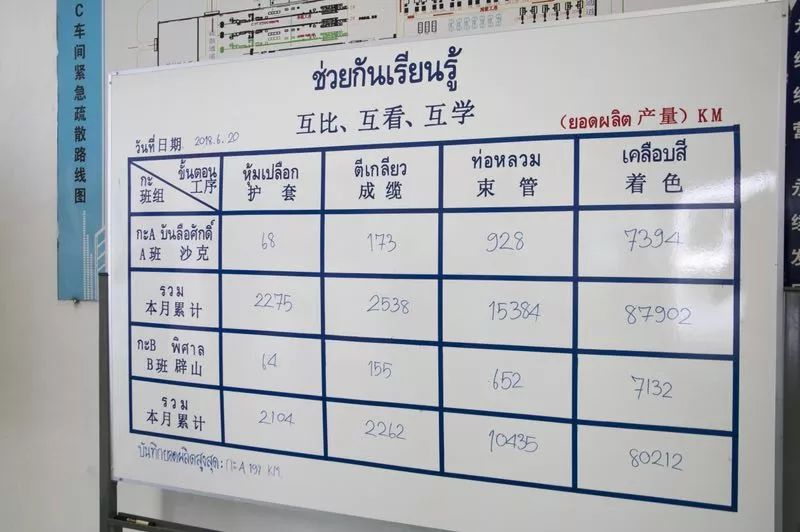 C车间紧急疏散路线图
ช่วยกันเรียนรู้
互比、互看、互学
(ยอดผลิต 产量) KM
วันที่日期 2018.6.20
กะ班组 ขั้นตอน工序 หุ้มเปลือก护套 ตีเกลียว成缆 ท่อหลวม束管 เคลือบสี着色
กะA บันลือศักดิ์ 68 173 928 7394
A班 沙克
รวม 2275 2538 15384 87902
本月累计
กะB พิศาล 64 155 652 7132
B班 辟山
รวม 2104 2262 10435 80212
本月累计
บันทึกยอดผลิตสูงสุด: กะA 197 KM.